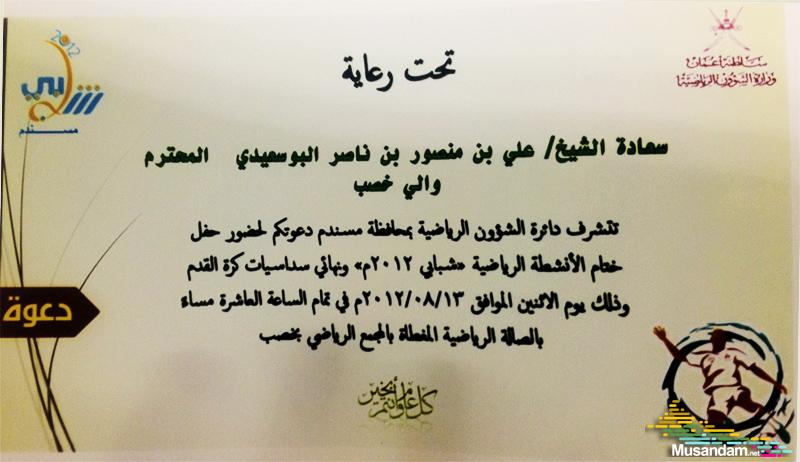 سلطنة عُمان
وزارة الشؤون الرياضية
2012
شبابي
مسندم
تحت رعاية
سعادة الشيخ/ علي بن منصور بن ناصر البوسعيدي المحترم
والي خصب
تتشرف دائرة الشؤون الرياضية بمحافظة مسندم دعوتكم لحضور حفل
ختام الأنشطة الرياضية «شبابي ٢٠١٢م» ونهائي سداسيات كرة القدم
وذلك يوم الاثنين الموافق ٢٠١٢/٠٨/١٣م في تمام الساعة العاشرة مساء
بالصالة الرياضية المغطاة بالمجمع الرياضي بخصب
دعوة
كل عام وأنتم بخير
Musandam.net